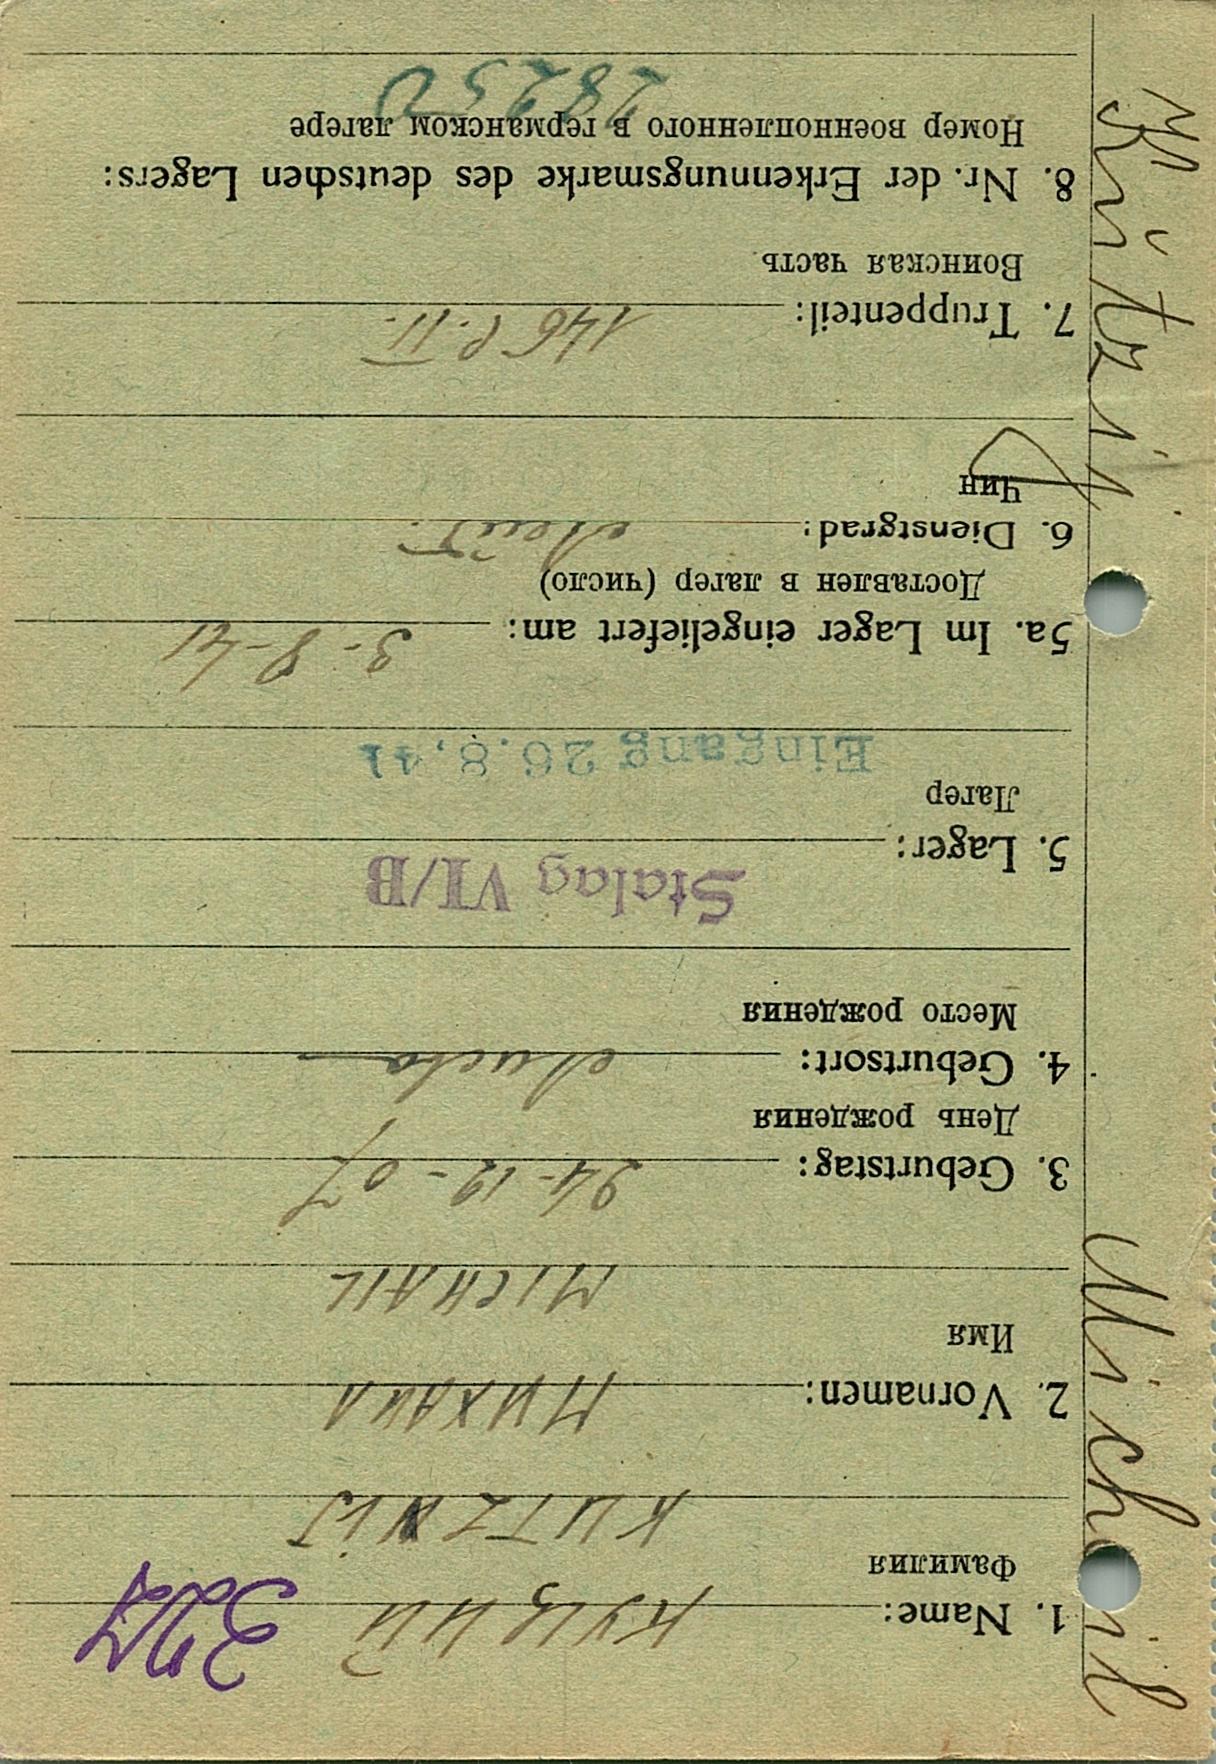 1. Name: КУЦИЙ
Фамилия
KUTZIJ
2. Vornamen: МИХАИЛ
Имя
MICHAIL
3. Geburtstag: 24-12-07
День рождения
4. Geburtsort:
Место рождения
Stalag VI/B
5. Lager:
Лагер
Eingang 26.8.41
5a. Im Lager eingeliefert am: 3-8-41
Доставлен в лагер (число)
6. Dienstgrad: Лейт.
Чин
7. Truppenteil: 146 с.п.
Воинская часть
8. Nr. der Erkennungsmarke des deutschen Lagers:
Номер военнопленного в германском лагере
2825
Kützij Michail